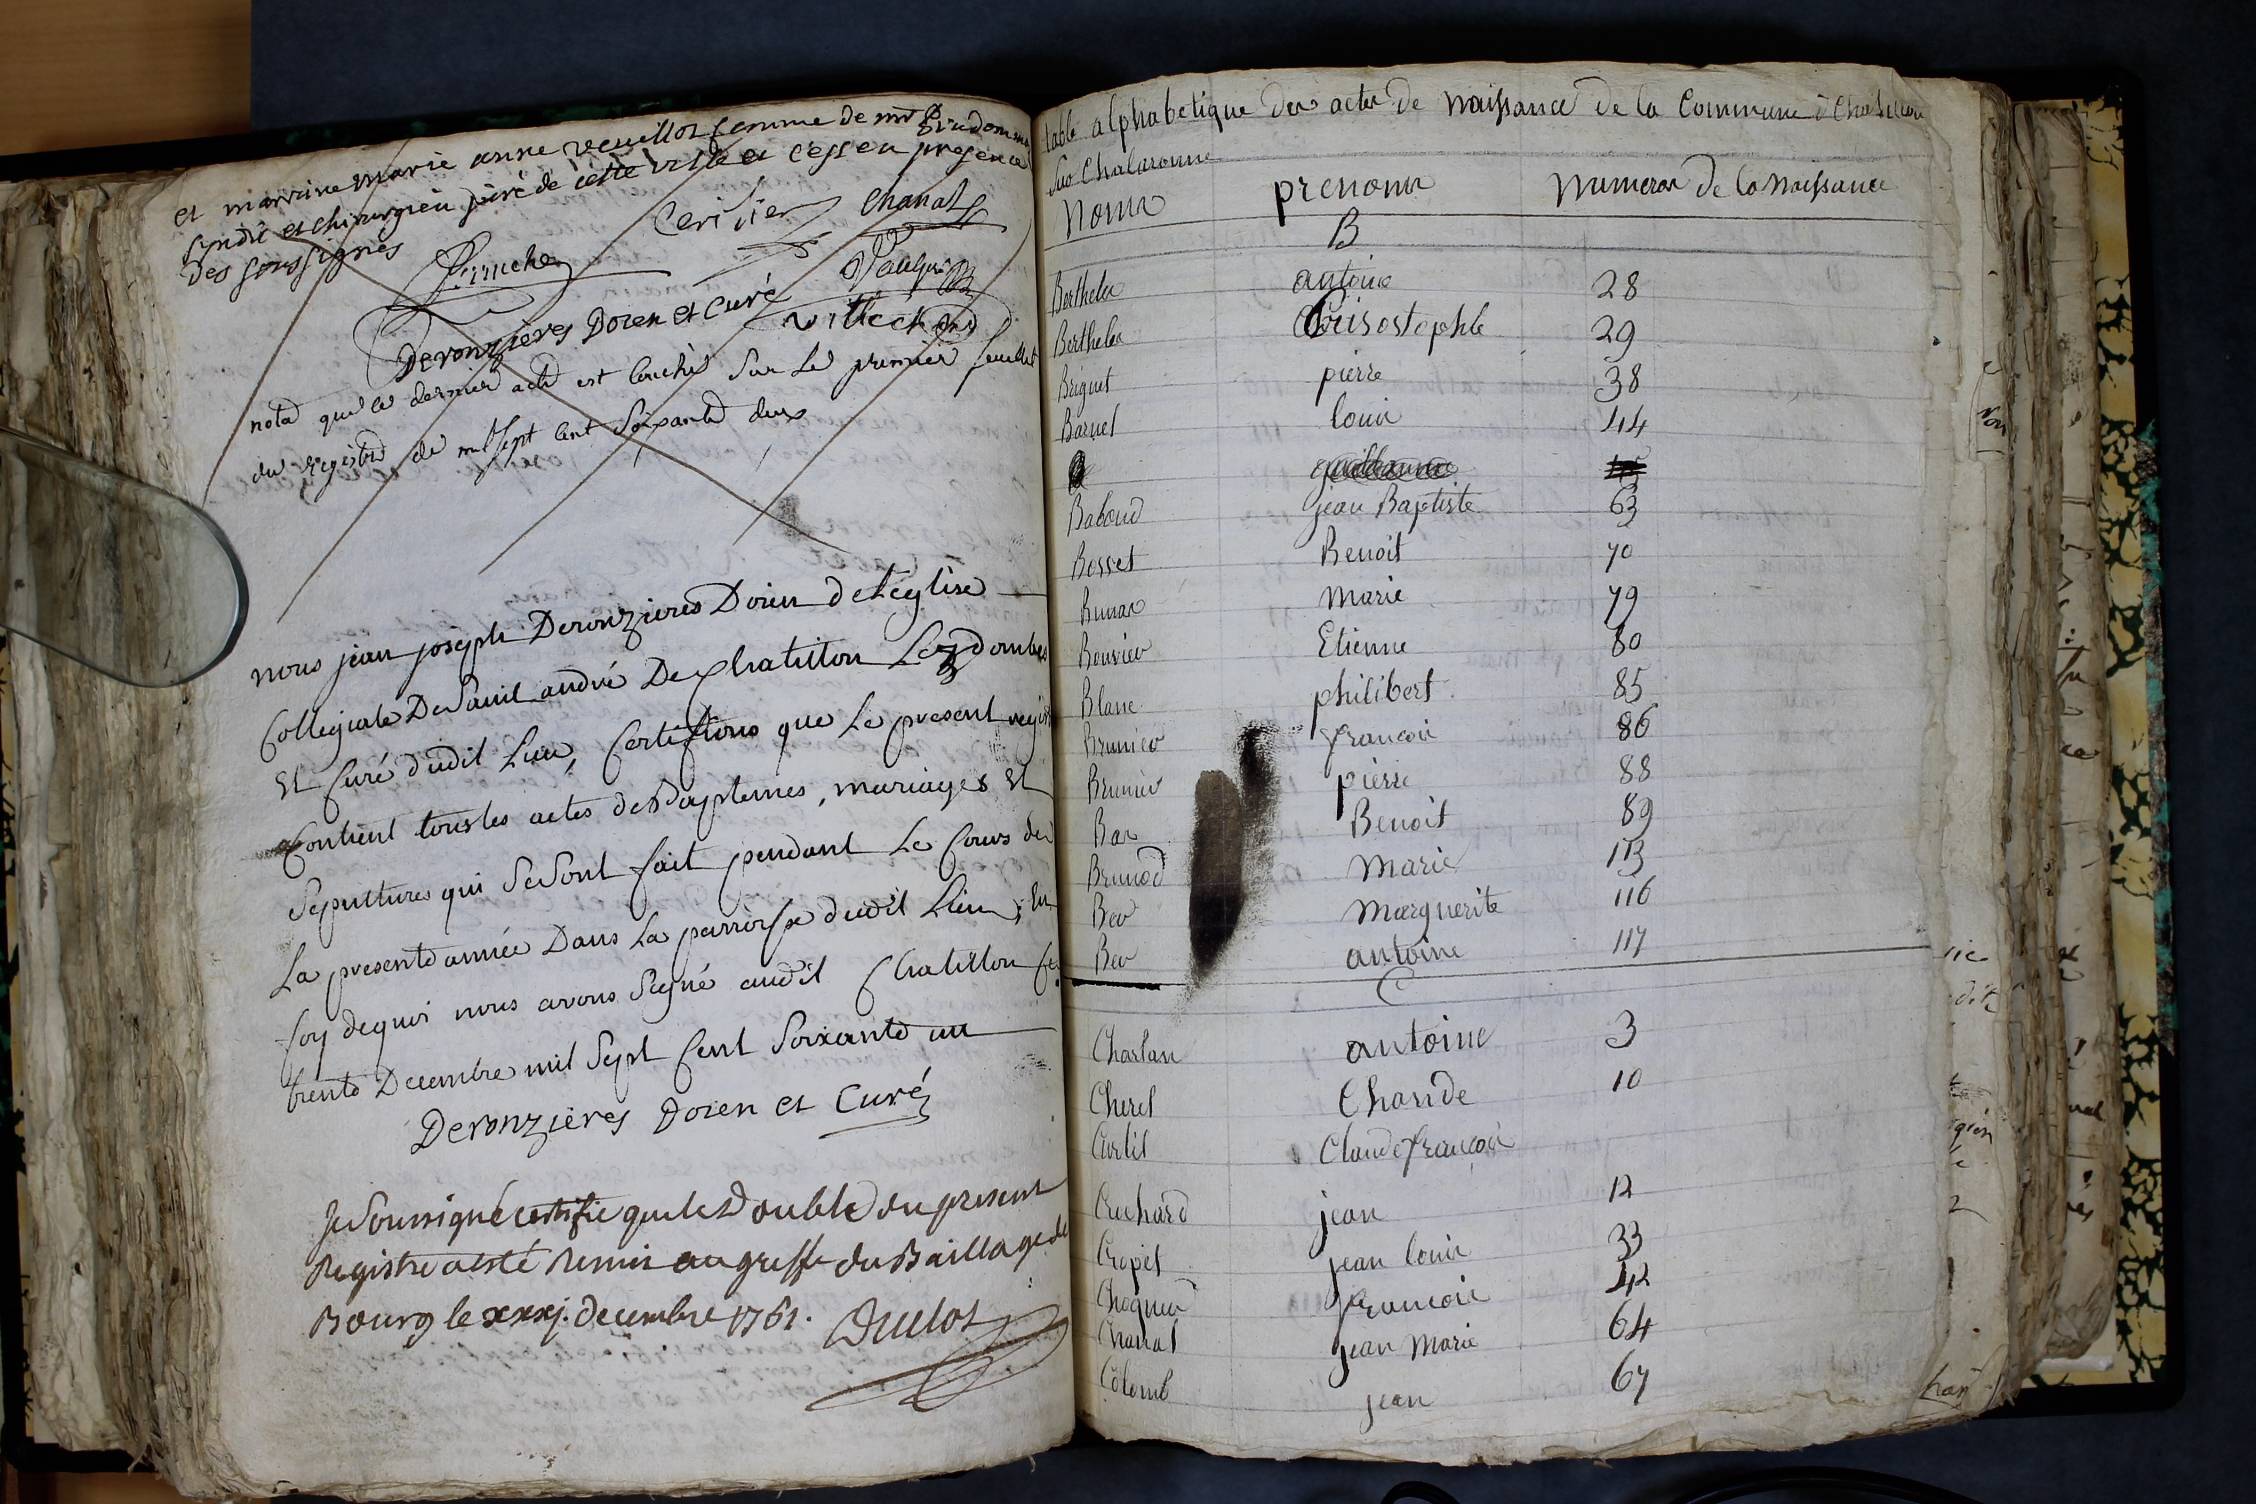 et marraine marie anne recuellot femme de mr prudomme
syndic et chirurgien juré de cette ville et c'est en presence
des soussignés
Cerisier Chanal
Perruche
Deronzieres Doien et Curé
nota que ce dernier acte est couché sur le premier feuillet
du registre de mil sept cent soixante deux
nous jean joseph Deronzieres Doien de L'eglise
Collegiale De Saint andré De Chatillon Lez dombes
Et Curé dudit Lieu, Certifions que Le present regist
Contient tous les actes de Baptemes, mariages Et
Sepultures qui Se Sont fait pendant Le Cours de
La presente année Dans La parroisse dudit Lieu, En
foy de quoi nous avons Signé audit Chatillon Ce
trente Decembre mil Sept Cent Soixante un
Deronzieres Doien et Curé
Je Soussigné certifie que le Double du present
Registre a esté Remis au greffe du Baillage de
Bourg le xxxj. decembre 1761. Duclot
table alphabetique des actes de Naissance de la Commune de Chatillon
sur Chalaronne
Noms prenoms Numeros de la Naissance
B
Berthelet antoine 28
Berthelet Crisostophle 29
Briguet pierre 38
Barnel louis 44
guillaume
Baboud jean Baptiste 63
Bosset Benoit 70
marie 79
Bouvier Etienne 80
Blanc philibert 85
Brunier francois 86
Brunier pierre 88
Benoit 89
Brunod marie 113
marguerite 116
antoine 117
C
Charlan antoine 3
Cherel Claude 10
Curtil Claude francois
Crochard jean 12
Cropet jean louis 33
francois 42
Chanal jean marie 64
Colomb jean 67